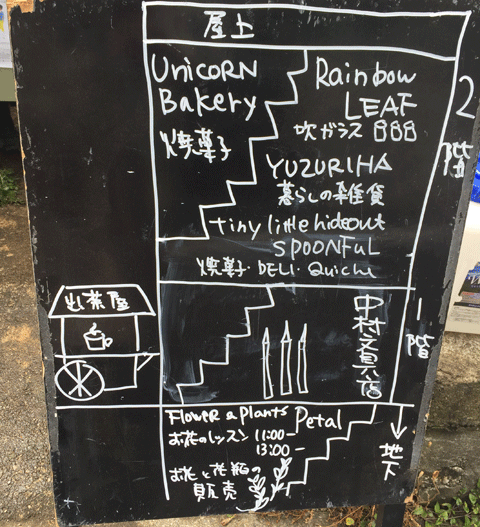 屋上
Unicorn
Bakery
焼菓子
Rainbow
LEAF
吹ガラス
2階
YUZURIHA
暮らしの雑貨
tiny little hideout
SPOONFUL
焼菓子・DELI・Quiche
中村文具店
一階
お茶屋
Flower & Plants Petal
お花のレッスン 11:00-
13:00-
お花と花瓶の
販売
地下